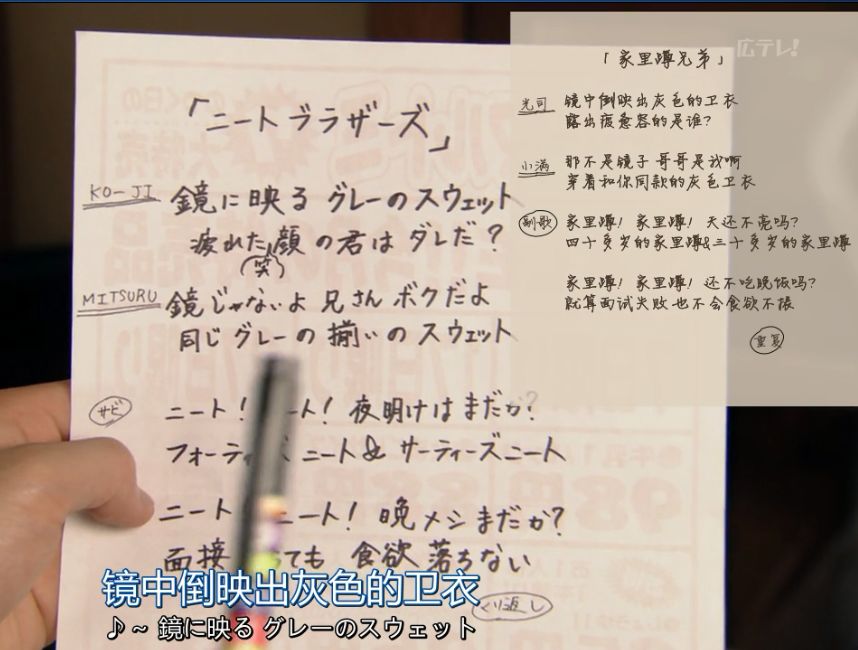 「ニートブラザーズ」
KO-JI 鏡に映る グレーのスウェット
疲れた顔の君は ダレだ?
(笑)
MITSURU 鏡じゃないよ 兄さん ボクだよ
同じグレーの 揃いの スウェット
サビ ニート! ート! 夜明けは まだか?
フォーティ ニート& サーティーズニート
ニート ニート! 晩メシ まだか?
面接 ても 食欲 落ちない
くり返し
広テレ!
「家里蹲兄弟」
光司 镜中倒映出灰色的卫衣
露出疲惫容的是谁?
小满 那不是镜子 哥哥是我啊
穿着和你同款的灰色卫衣
副歌 家里蹲! 家里蹲! 天还不亮吗?
四十多岁的家里蹲&三十多岁的家里蹲
家里蹲! 家里蹲! 还不吃晚饭吗?
就算面试失败 也不会食欲不振
重复
镜中倒映出灰色的卫衣
♪~ 鏡に映る グレーのスウェット